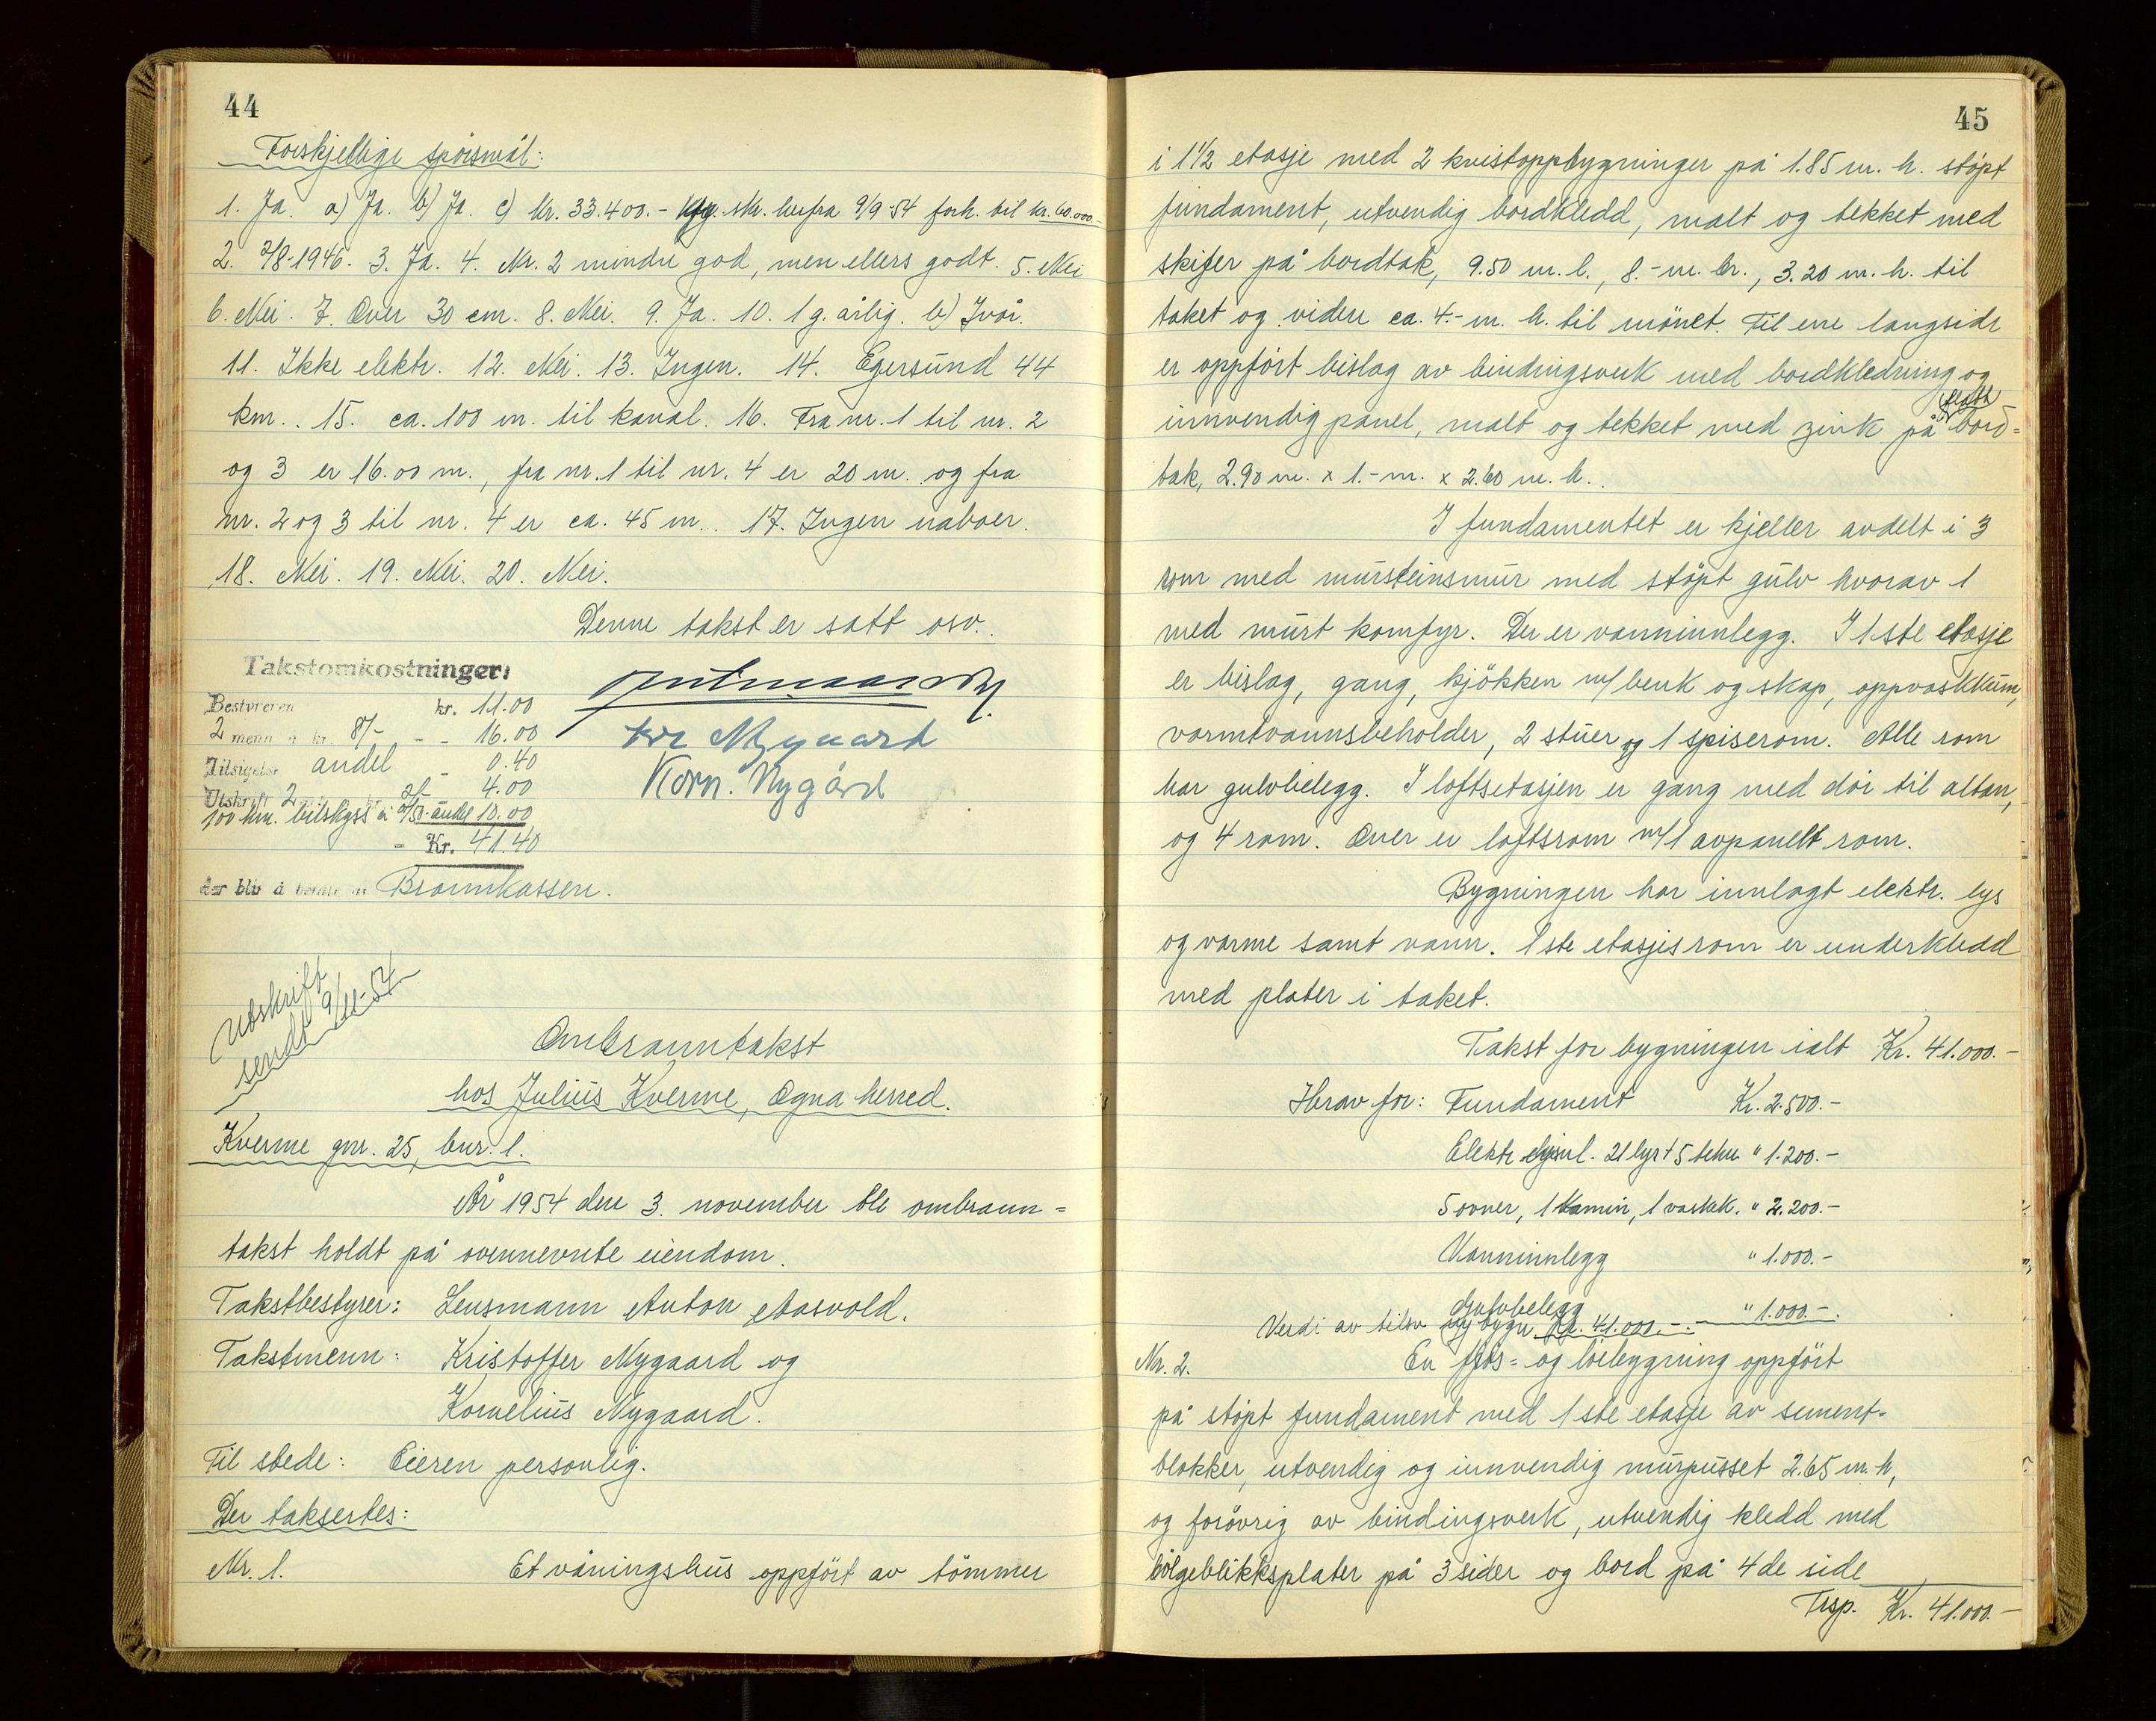 44
Forskjellige spörsmål:
1. Ja. a) Ja. b) Ja. c) kr. 33.400.- skr. herfra 9/9-54 forh. til kr. 60.000-
2. 7/8-1946. 3. Ja. 4. Nr. 2 mindre god, men ellers godt. 5. Nei
6. Nei. 7. Over 30 cm. 8. Nei. 9. Ja. 10. 1 g. årlig. b) Ivår.
11. Ikke elektr. 12. Nei. 13. Ingen. 14. Egersund 44
km.. 15. ca. 100 m. til kanal. 16. Fra nr. 1 til nr. 2
og 3 er 16.00 m., fra nr. 1 til nr. 4 er 20 m. og fra
nr. 2 og 3 til nr. 4 er ca. 45 m.. 17. Ingen naboer.
18. Nei. 19. Nei. 20. Nei.
Denne takst er satt osv..
Takstomkostninger:
Bestyreren kr. 11.00
2 menn à kr. 8/- - - 16.00
Tilsigelse andel - 0.40
Utskrift 2 2/- 4.00
100 km. bilskyss à 2/50 andel 10.00
- Kr. 41.40
der bliv å betale av Brannkassen.
Kr. Nygaard
Korn. Nygård
Utskrift
sendt 9/11-54
Ombranntakst
hos Julius Kverme, Ogna herred.
Kverme gnr. 25, bnr. 1.
År 1954 den 3. november ble ombrann=
takst holdt på ovennevnte eiendom.
Takstbestyrer: Lensmann Anton Aasvold.
Takstmenn: Kristoffer Nygaard og
Kornelius Nygaard.
Til stede: Eieren personlig.
Der taksertes:
Nr. 1. Et våningshus oppfört av tömmer
45
i 1 1/2 etasje med 2 kvistoppbygninger på 1.85 m. h. stöpt
fundament, utvendig bordkledd, malt og tekket med
skifer på bordtak, 9.50 m. l., 8.- m. br., 3.20 m. h. til
taket og videre ca. 4.- m. h. til mönet. Til ene langside
er oppfört bislag av bindingsverk med bordkledning og
innvendig panel, malt og tekket med zink på flatt bord=
tak, 2.90 m. x 1.- m. x 2.60 m. h..
I fundamentet er kjeller avdelt i 3
rom med mursteinsmur med stöpt gulv hvorav 1
med murt komfyr. Der er vanninnlegg. I 1ste etasje
er bislag, gang, kjökken m/ benk og skap, oppvaskkum,
varmtvannsbeholder, 2 stuer og 1 spiserom. Alle rom
har gulvbelegg. I loftsetasjen er gang med dör til altan,
og 4 rom. Over er loftsrom m/ 1 avpanelt rom.
Bygningen har innlagt elektr. lys
og varme samt vann. 1ste etasjes rom er underkledd
med plater i taket.
Takst for bygningen ialt Kr. 41.000.-
Herav for: Fundament Kr. 2.500.-
Elektr. 21 lys + 5 tekn. " 1.200.-
5 ovner, 1 kamin, 1 vaskek. " 2.200.-
Vanninnlegg " 1.000.-
Gulvbelegg " 1.000.-.
Verdi av tilsv. ny bygn. Kr. 41.000.-.
Nr. 2. En fjös= og löebygning oppfört
på stöpt fundament med 1ste etasje av sement-
blokker, utvendig og innvendig murpusset 2.65 m. h,
og forövrig av bindingsverk, utvendig kledd med
bölgeblikksplater på 3 sider og bord på 4de side
Trsp. Kr. 41.000.-